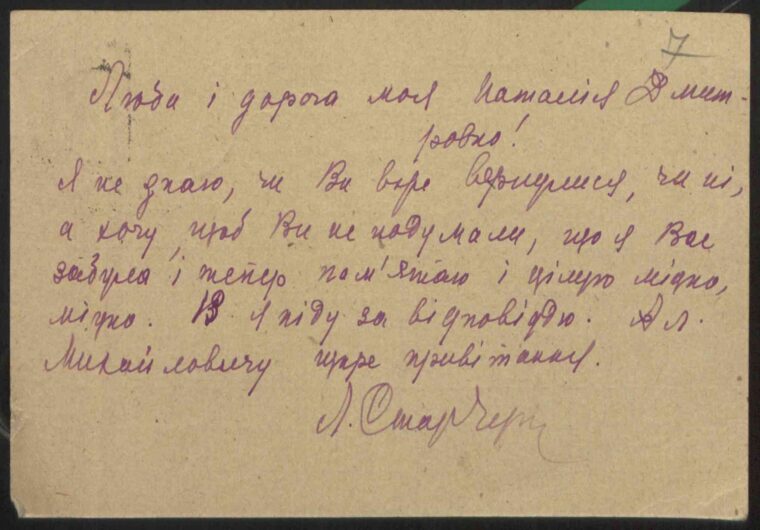 7
Люба і дорога моя Наталія Дмит-
ровно!
Я не знаю, чи Ви вже вернулися, чи ні,
а хочу щоб Ви не подумали, що я Вас
забула і тепер пам'ятаю і цілую міцно,
міцно. 13 я піду за відповіддю. Ал.
Михайловичу щире привітання.
Л. СтарЧерн